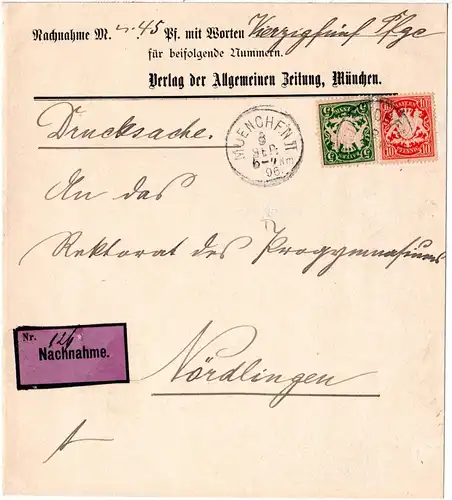 Nachnahme M. 45 Pf. mit Worten Vierzigfünf Pfge
für beifolgende Nummern.
Verlag der Allgemeinen Zeitung, München.
Drucksache.
MUENCHEN II
8
SEP.
6-7 Nm
96
BAYERN
5 PFENNIG 5
BAYERN
10 PFENNIG 10
An das
Rektorat des Progymnasiums
Nr. 126
Nachnahme.
Nördlingen